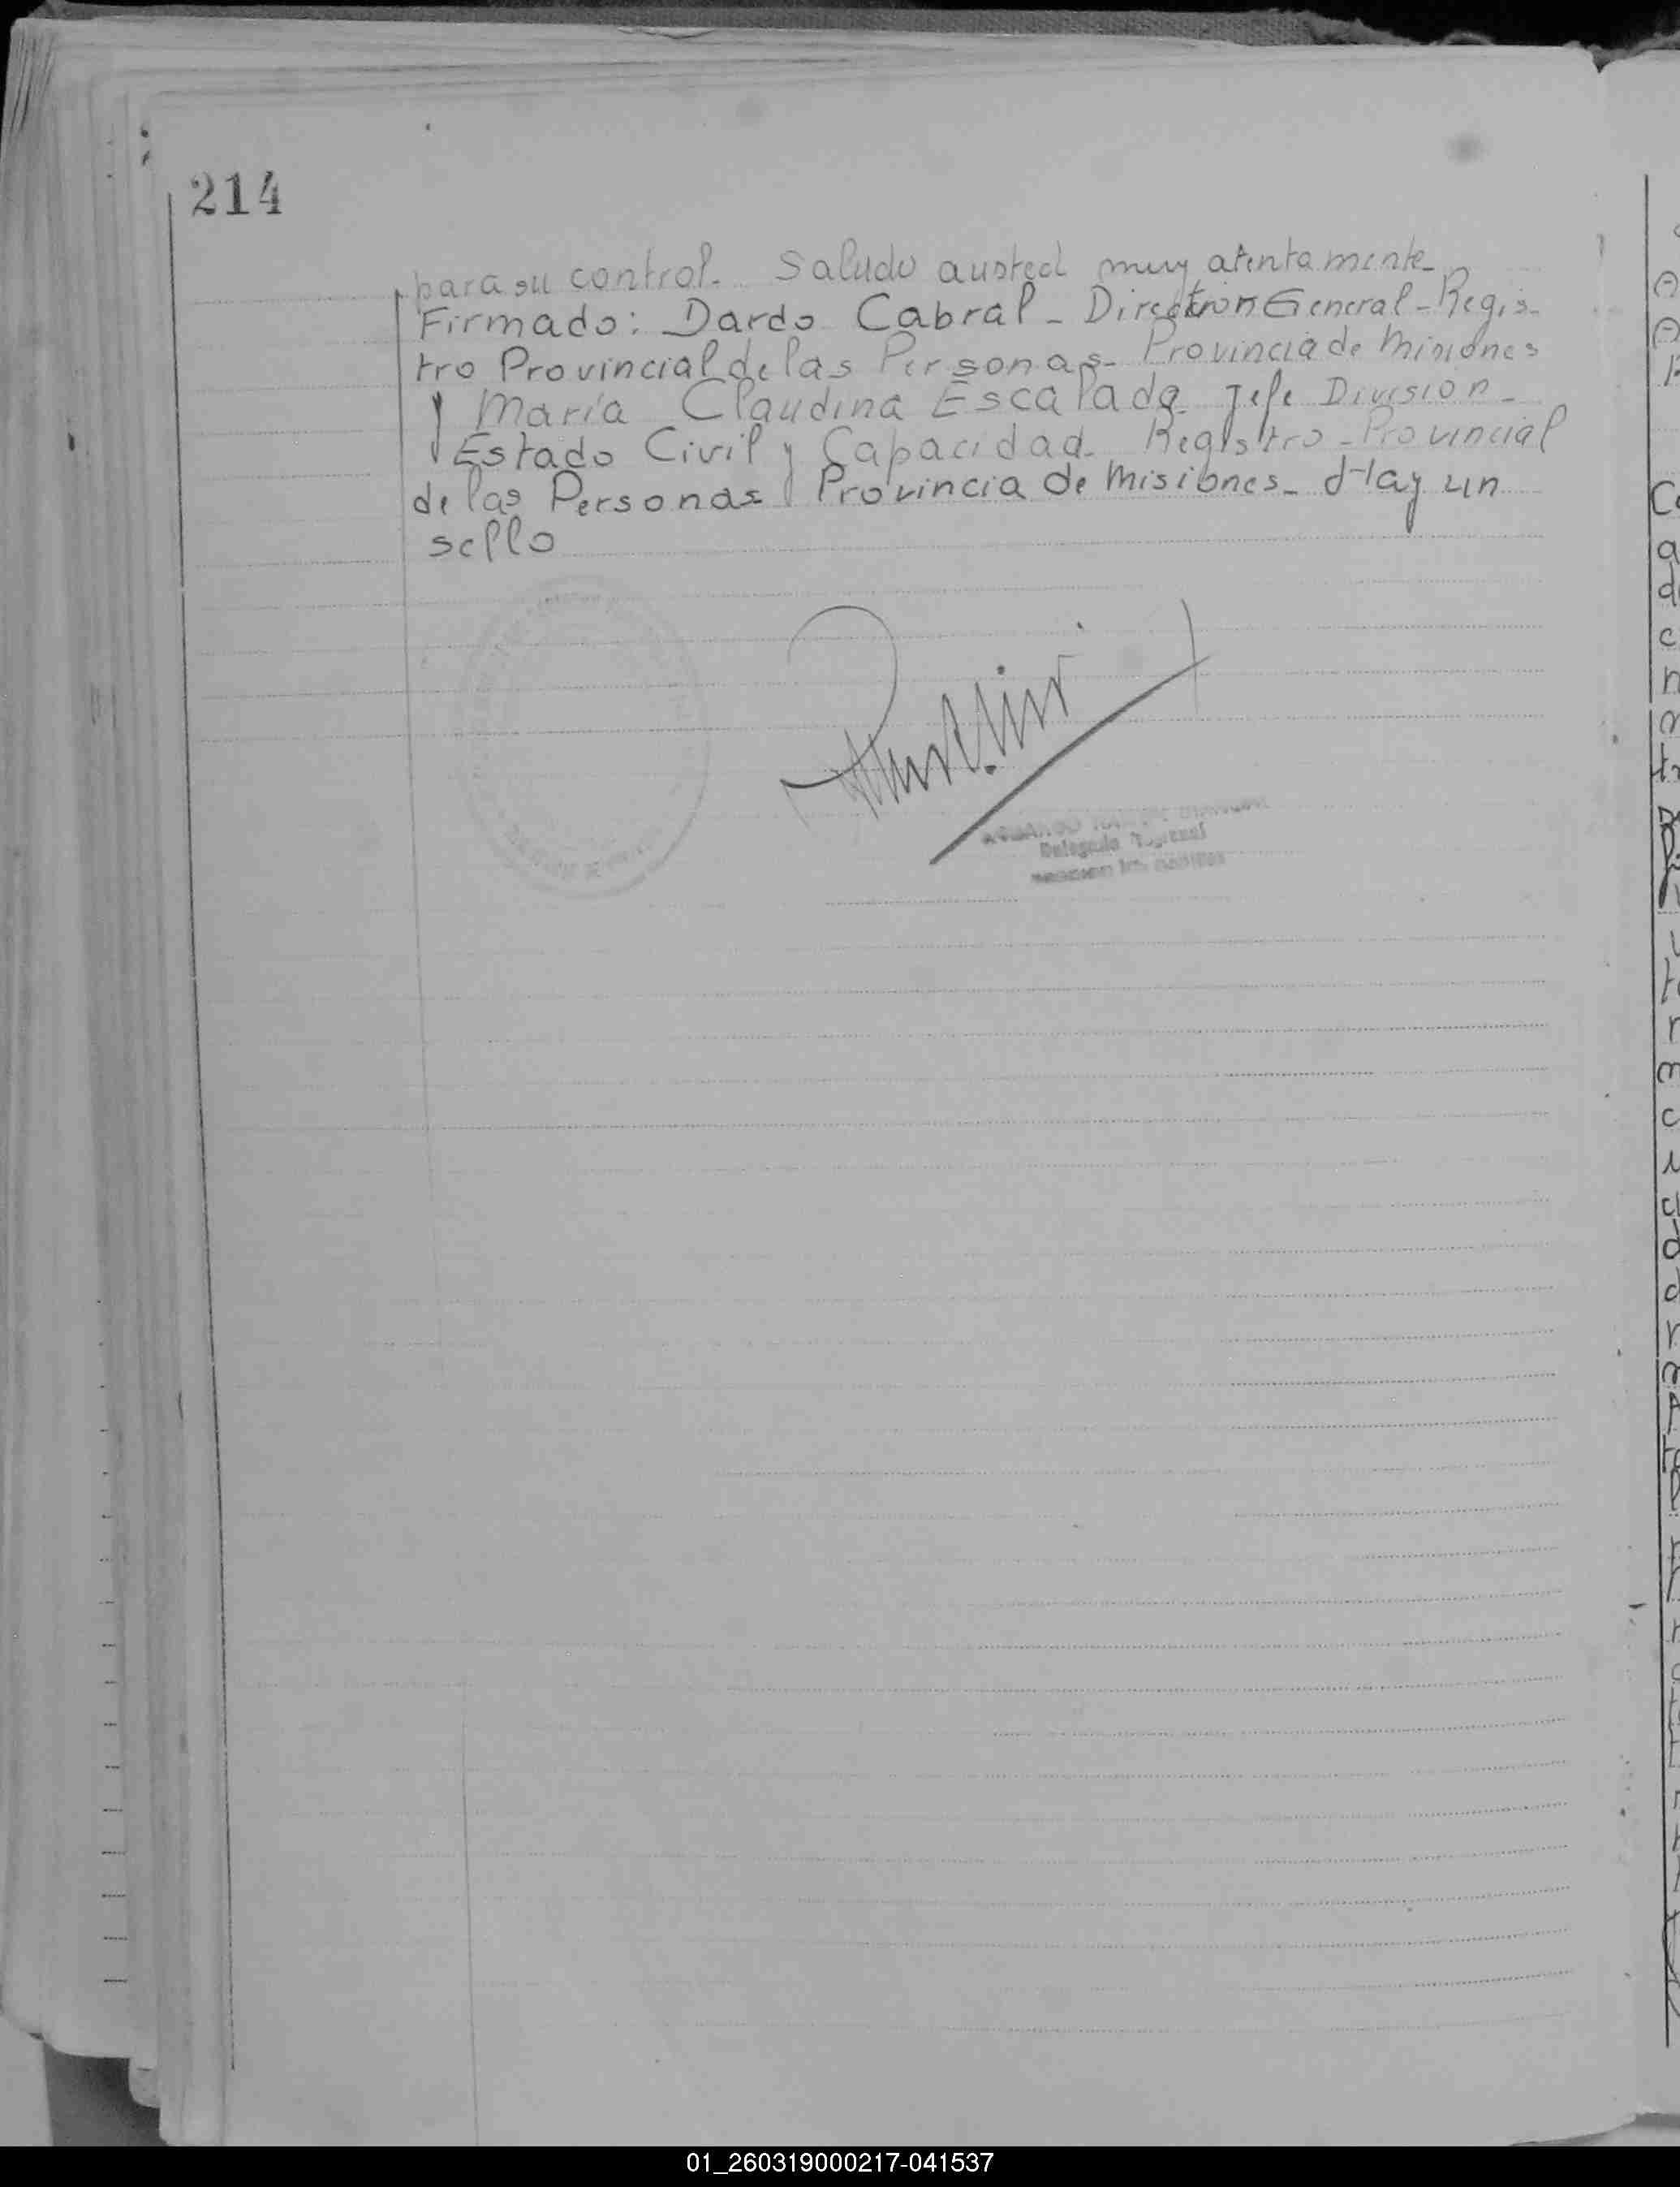 214
para su control. Saludo austed muy atentamente_
Firmado: Dardo Cabral_ Direction General_Regis_
tro Provincial de las Personas_ Provincia de Misiones
y María Claudina Escalada_ Jefe Division_
Estado Civil y Capacidad_ Registro_Provincial
de las Personas Provincia de Misiones_ Hay un
sello
Delegado Regional
01_260319000217-041537